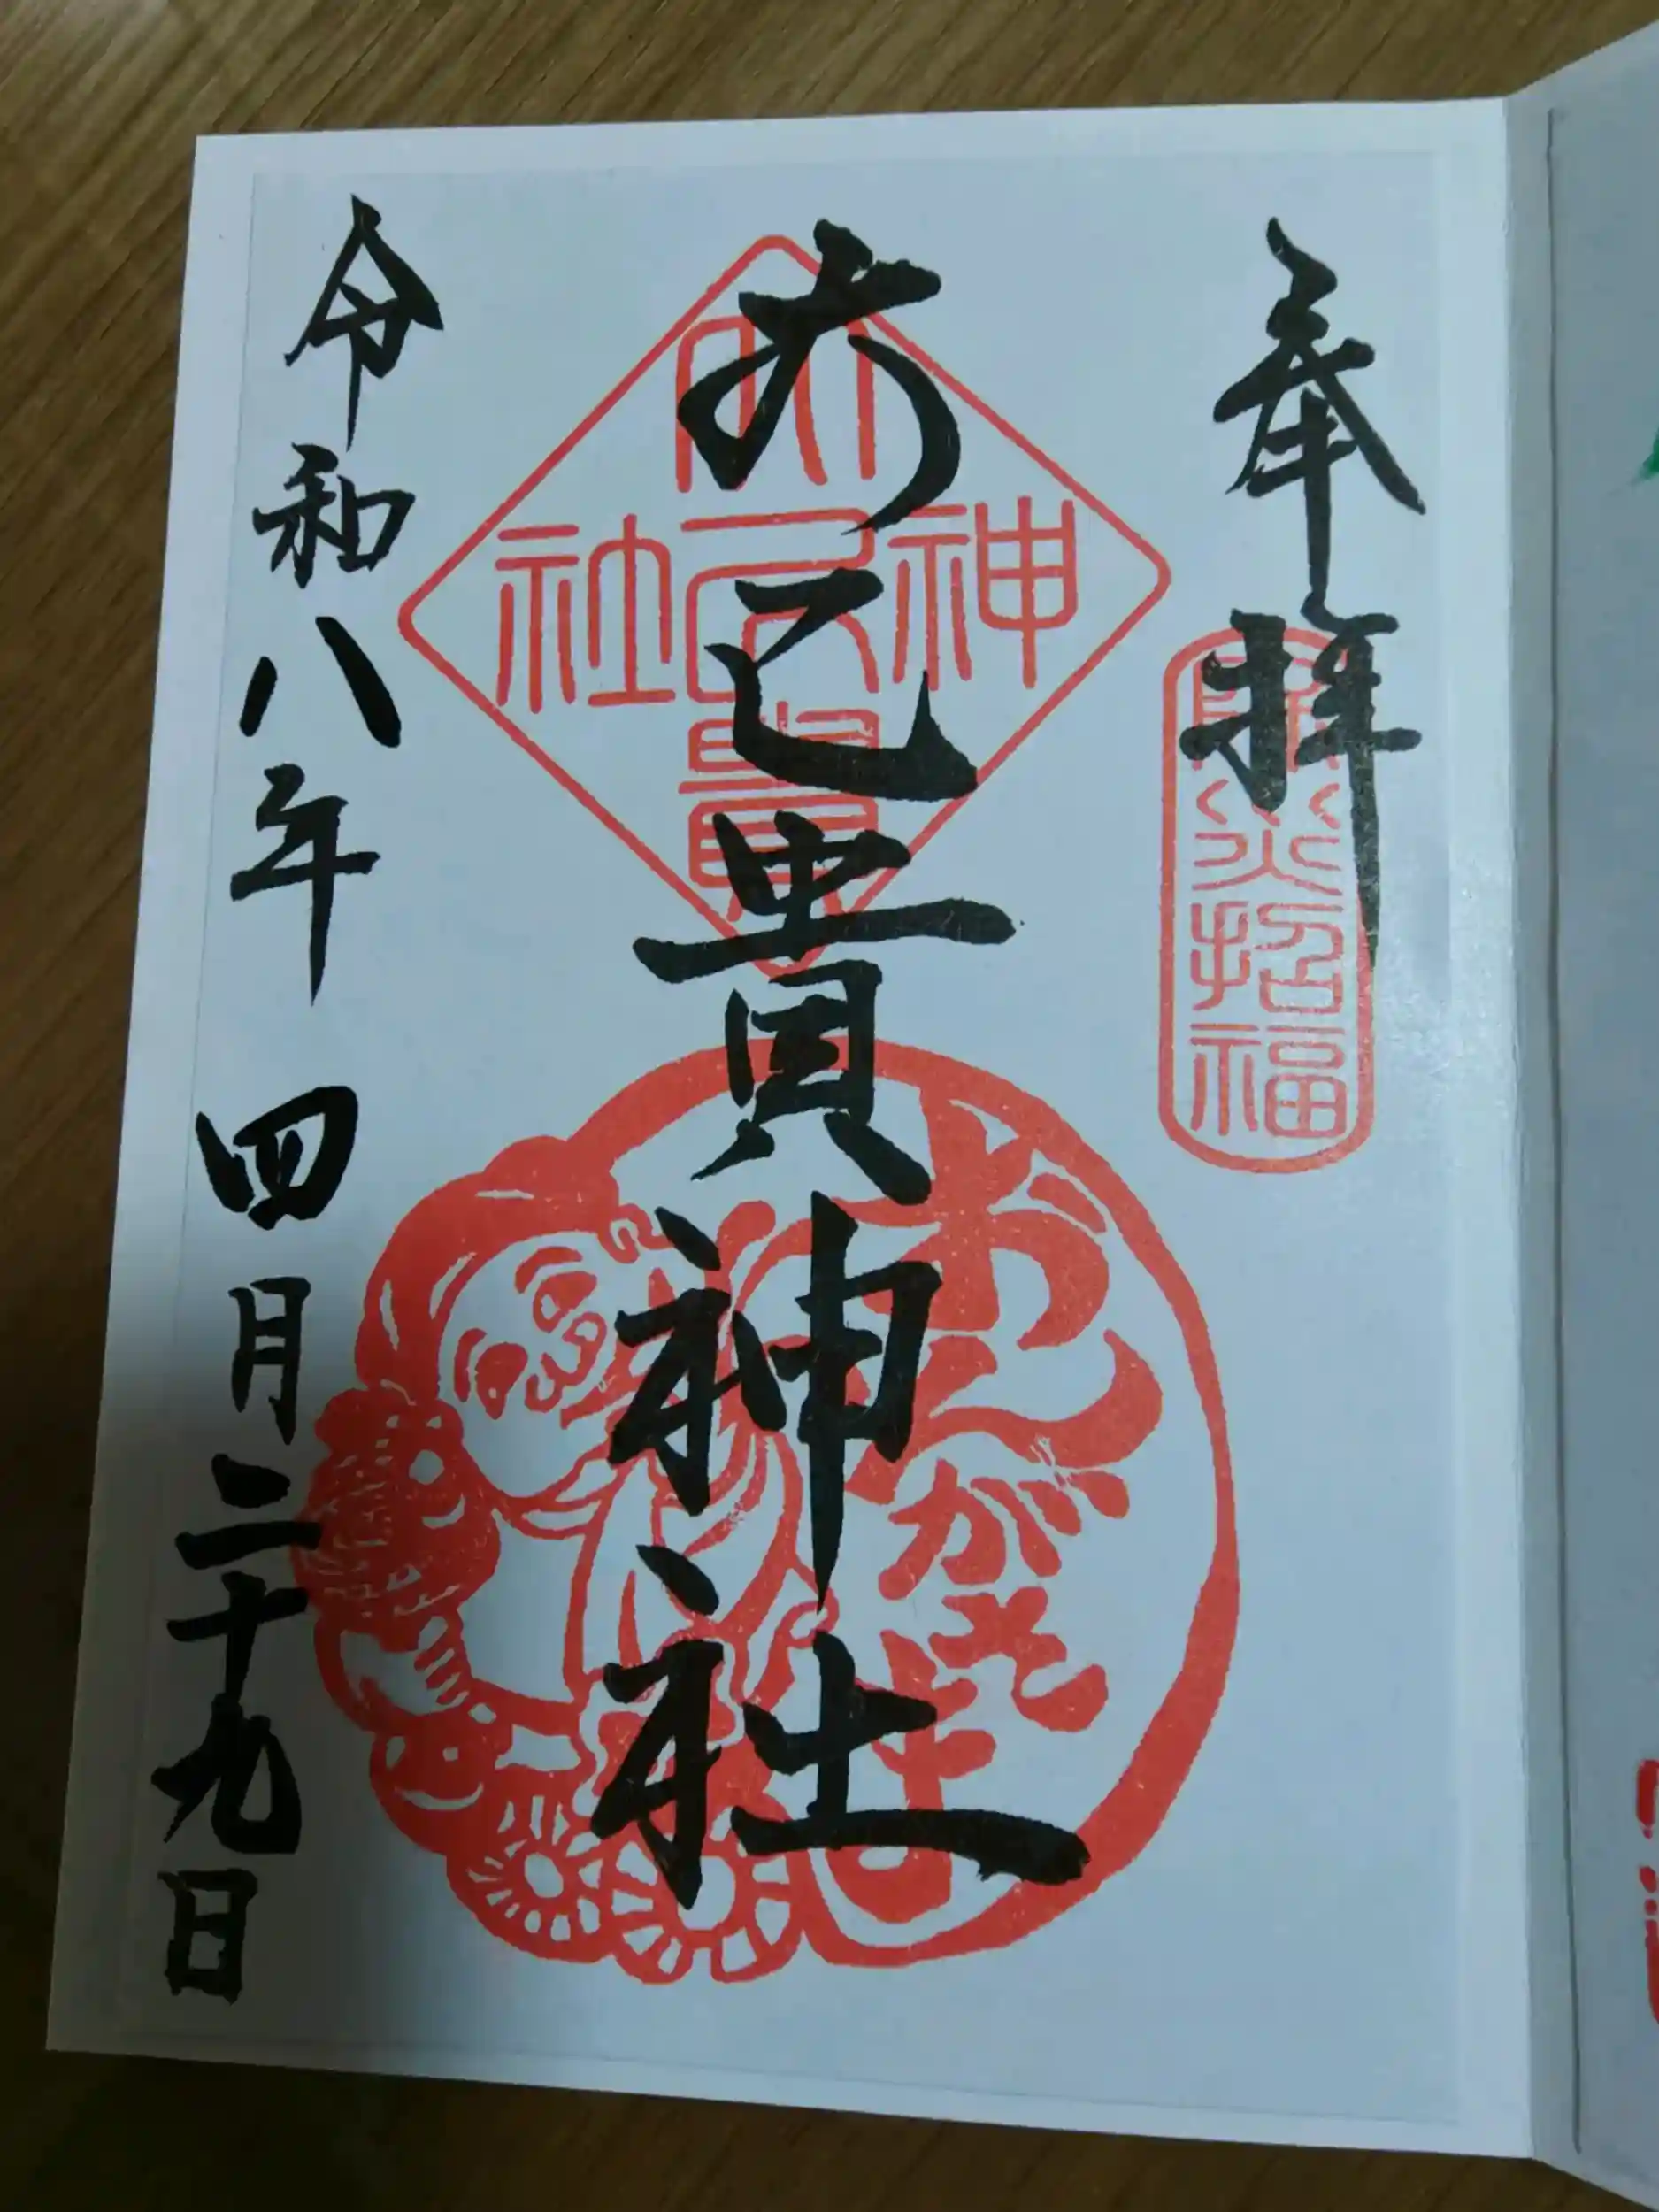 奉拝
除災招福
大己貴神社
大己貴
神社
おんがさま
令和八年 四月二十九日